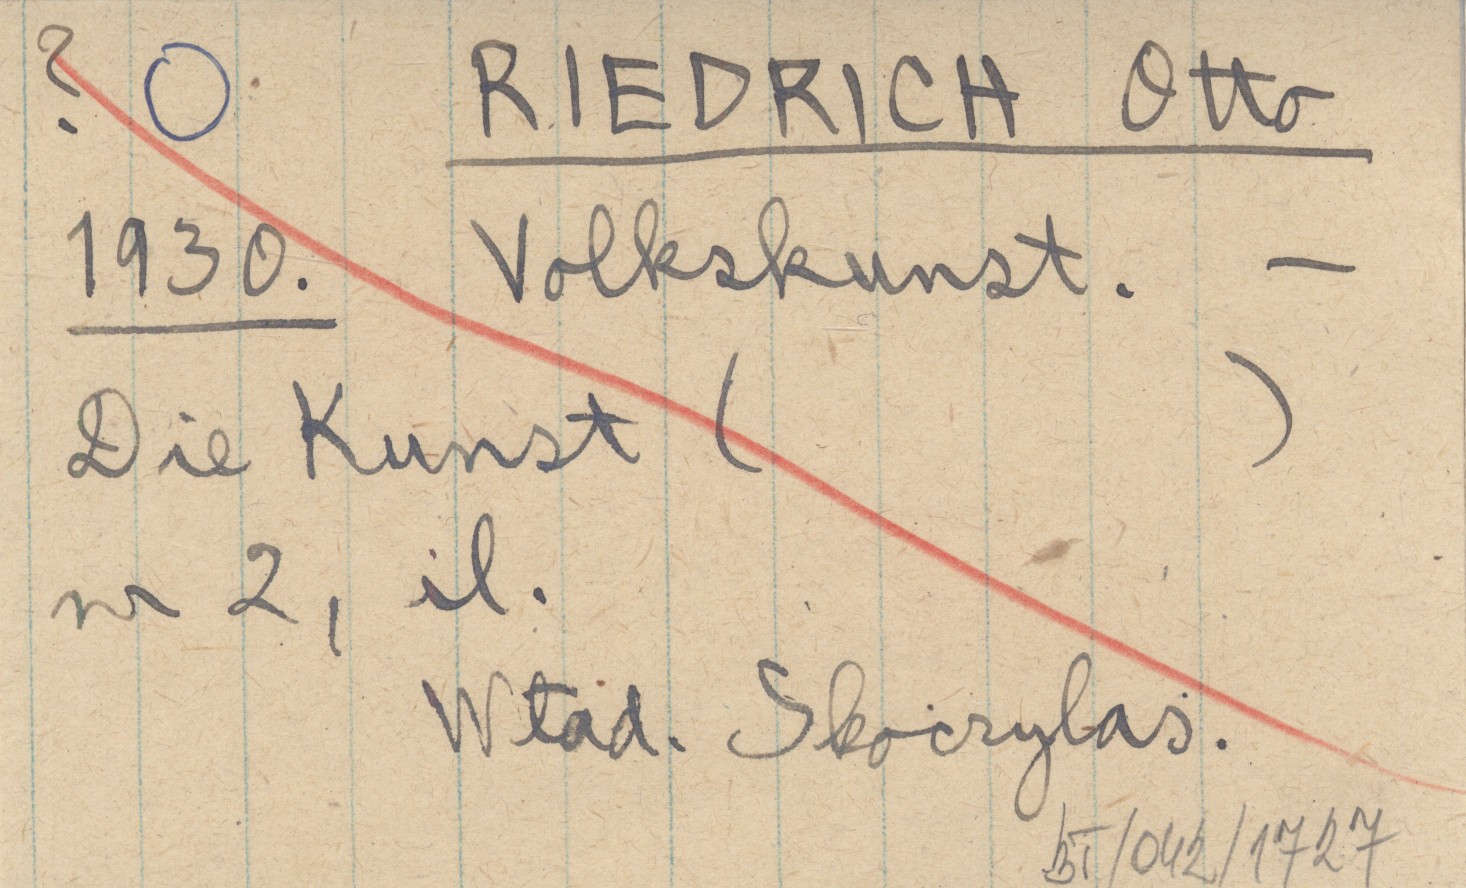 ? O RIEDRICH Otto
1930. Volkskunst. —
Die Kunst ( )
nr 2, il.
Wład. Skoczylas.
BT/042/1727